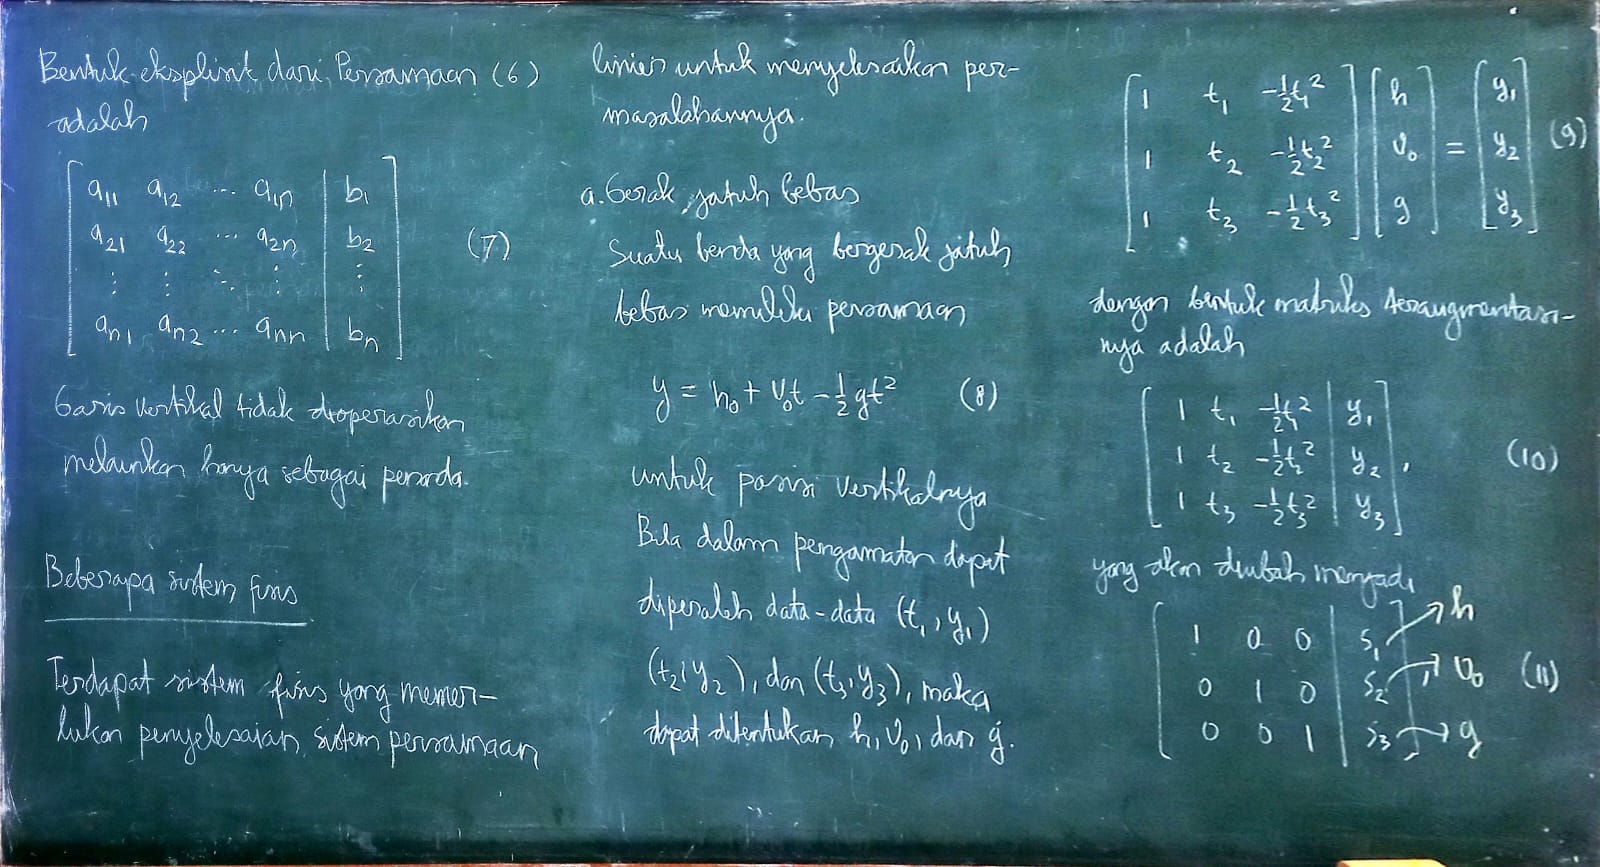 Bentuk eksplisit dari Persamaan (6)
adalah
[ a₁₁ a₁₂ ... a₁n | b₁ ]
[ a₂₁ a₂₂ ... a₂n | b₂ ]
[ ⋮ ⋮ ⋱ ⋮ | ⋮ ] (7)
[ an₁ an₂ ... ann | bn ]
Garis vertikal tidak dioperasikan
melainkan hanya sebagai penanda.
Beberapa sistem fisis
Terdapat sistem fisis yang memer-
lukan penyelesaian sistem persamaan
linier untuk menyelesaikan per-
masalahannya.
a. Gerak jatuh bebas
Suatu benda yang bergerak jatuh
bebas memiliki persamaan
y = h₀ + v₀t - ½gt² (8)
untuk posisi vertikalnya
Bila dalam pengamatan dapat
diperoleh data-data (t₁, y₁)
(t₂, y₂), dan (t₃, y₃), maka
dapat ditentukan h, v₀, dan g.
[ 1 t₁ -½t₁² ] [ h ] [ y₁ ]
[ 1 t₂ -½t₂² ] [ v₀ ] = [ y₂ ] (9)
[ 1 t₃ -½t₃² ] [ g ] [ y₃ ]
dengan bentuk matriks teraugmentasi-
nya adalah
[ 1 t₁ -½t₁² | y₁ ]
[ 1 t₂ -½t₂² | y₂ ], (10)
[ 1 t₃ -½t₃² | y₃ ]
yang akan diubah menjadi
[ 1 0 0 | s₁ ] → h
[ 0 1 0 | s₂ ] → v₀ (11)
[ 0 0 1 | s₃ ] → g